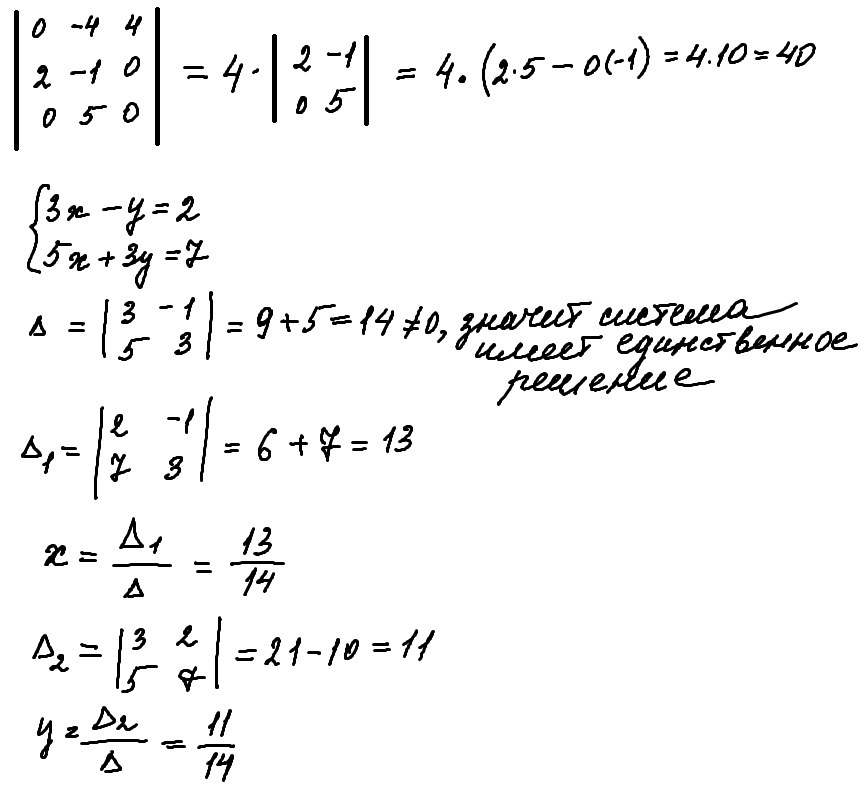 | 0 -4 4 |
| 2 -1 0 | = 4 · | 2 -1 | = 4 · (2·5 − 0(-1) = 4.10 = 40
| 0 5 0 | | 0 5 |
{ 3x − y = 2
5x + 3y = 7
Δ = | 3 -1 | = 9 + 5 = 14 ≠ 0, значит система
| 5 3 | имеет единственное
решение
Δ₁ = | 2 -1 | = 6 + 7 = 13
| 7 3 |
x = Δ₁/Δ = 13/14
Δ₂ = | 3 2 | = 21 − 10 = 11
| 5 7 |
y = Δ₂/Δ = 11/14